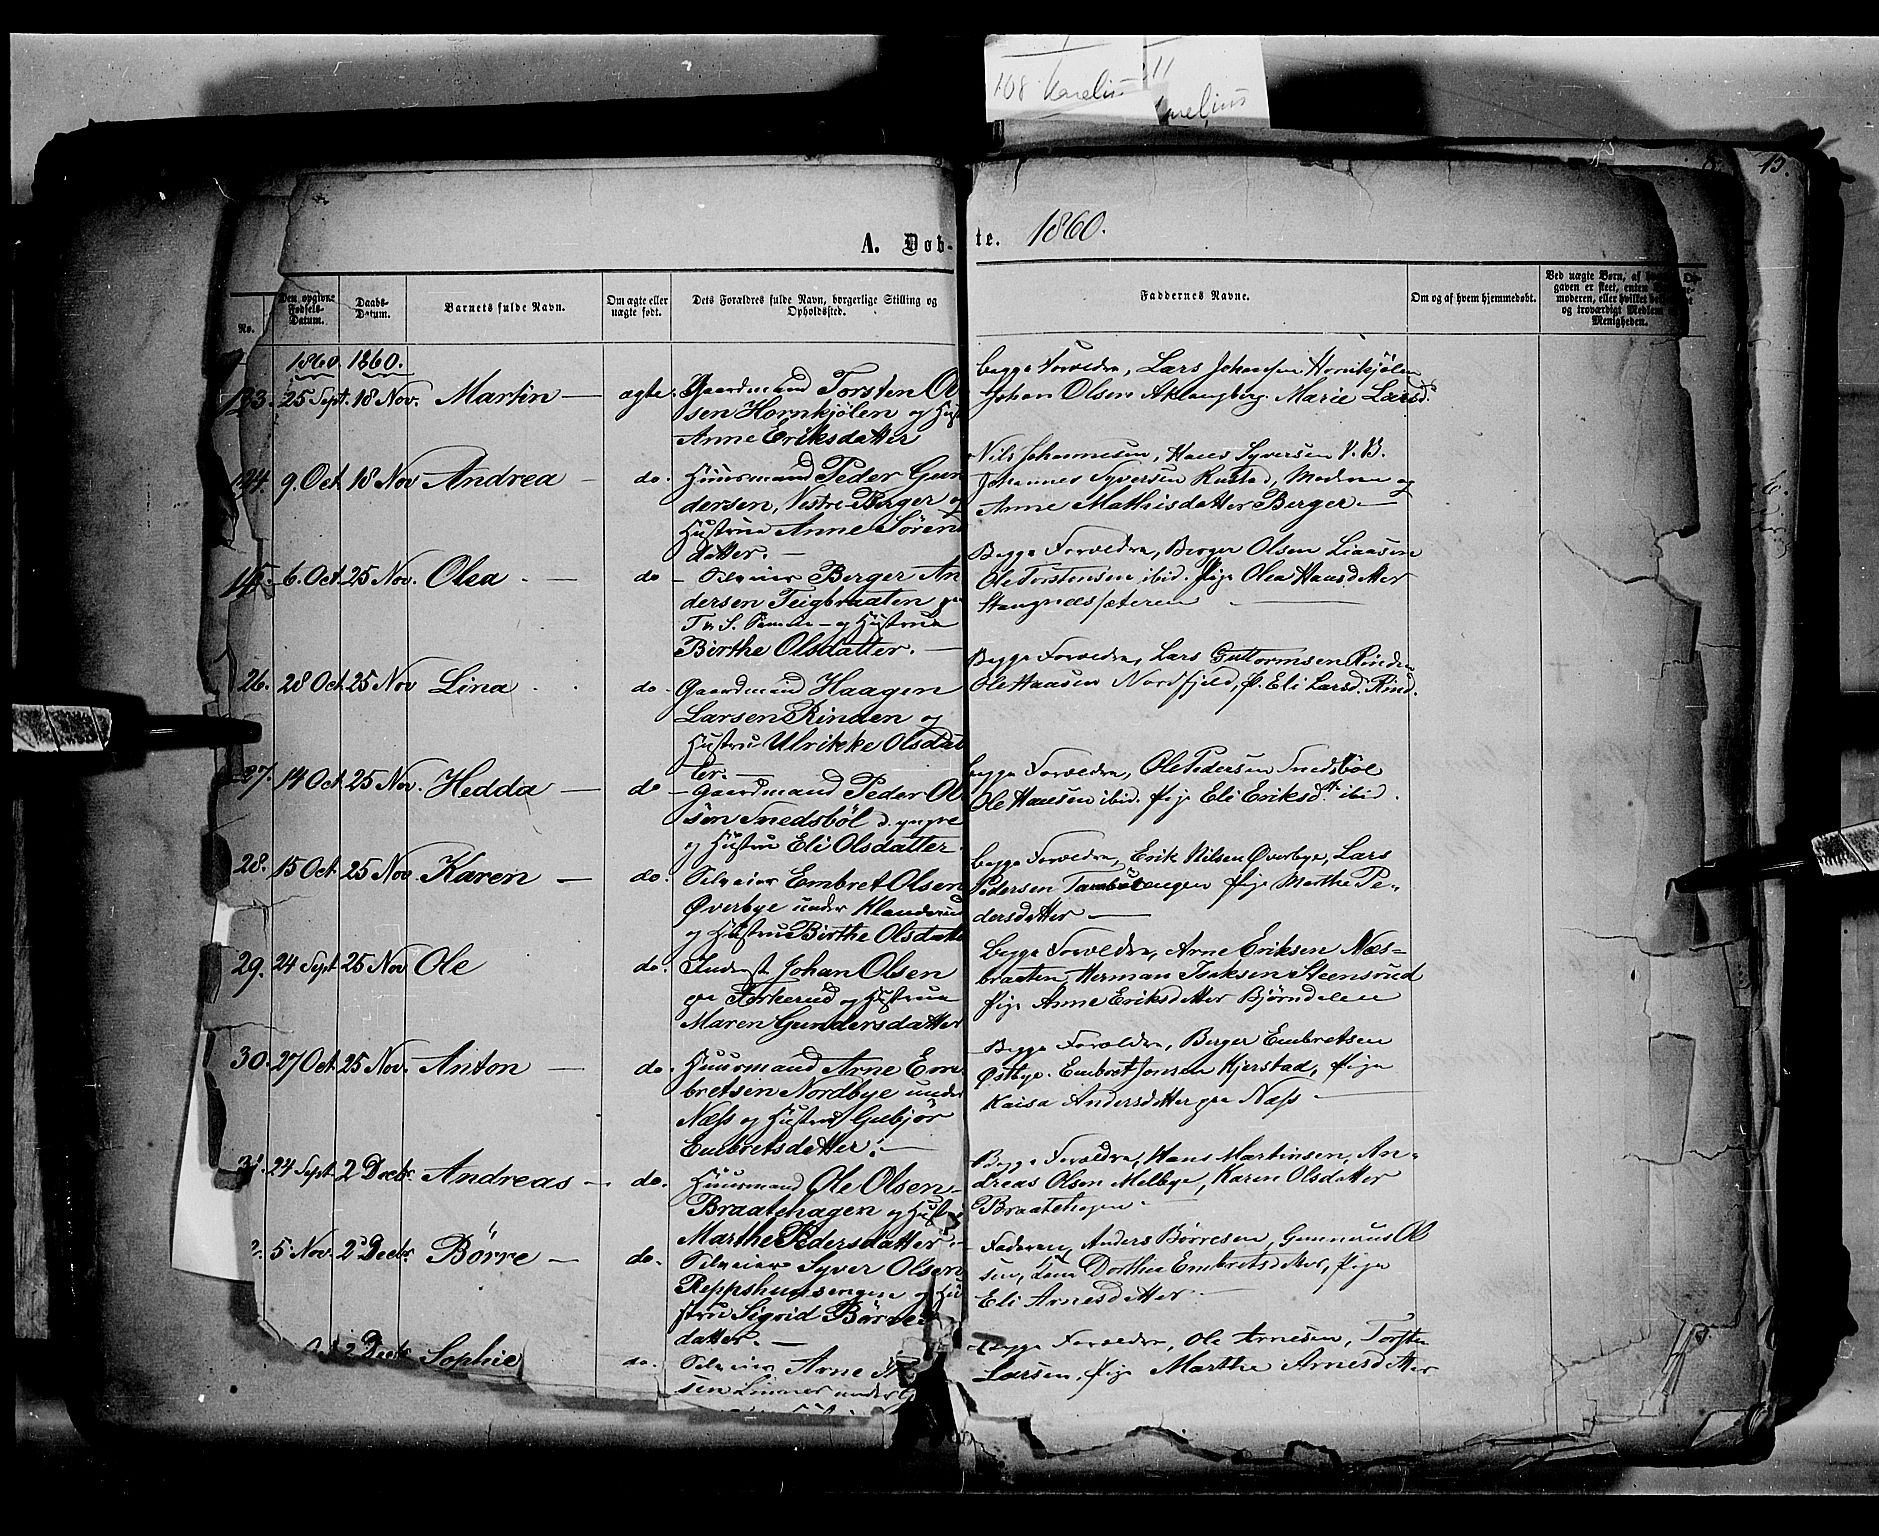 108 Karelius
A. Døb-
te. 1860.
15.
No.
Den opgivne Fødsels-Datum.
Daabs-Datum.
Barnets fulde Navn.
Om ægte eller uægte født.
Dets Forældres fulde Navn, borgerlige Stilling og Opholdssted.
Faddernes Navne.
Om og af hvem hjemmedøbt.
Ved uægte Børn, af
gaven er skeet, enten
moderen, eller hvilket
og troværdigt Medlem
Menigheden.
1860. 1860.
123. 25 Sept. 18 Nov. Martin — ægte.
Gaardmand Torsten Ol
sen Hornkjølen og
Anne Eriksdatter
Begge Forældre, Lars Johansen Hornkjølen
Johan Olsen Aklangberg. Marie Larsd.
124. 9. Oct. 18 Nov Andrea — do.
Huusmand Peder Gun
dersen, Vestre Berger og
Hustrue Anne Søren
datter. —
Nils Johannesen, Hans Syversen V. B.
Johannes Syversen Rustad, Moderen og
Anne Mathisdatter Berger —
6. Oct. 25 Nov. Olea — do
Selveier Berger An
dersen Teigbraaten
og Hustrue
Birthe Olsdatter. —
Begge Forældre, Berger Olsen Liaasen
Ole Torstensen ibid. Pige Olea Hansdatter
Stangnessæteren —
26. 28 Oct. 25 Nov Lina do.
Gaardmand Haagen
Larsen Rinden og
Hustru Ulrikke Olsdat
ter. —
Begge Forældre, Lars Guttormsen Rinden
Ole Hansen Nordfjeld, P. Eli Larsd. Rind.
27. 14 Oct. 25 Nov. Hedda — do
Gaardmand Peder Ol
sen Snedsbøl d. yngre
og Hustru Eli Olsdatter
Begge Forældre, Ole Pedersen Snedsbøl
Ole Hansen ibid. Pige Eli Eriksd. ibid.
28. 15 Oct. 25 Nov. Karen — do.
Selveier Embret Olsen
Øverbye under Klanderud
og Hustru Birthe Olsdatt
Begge Forældre, Erik Nilsen Øverbye, Lars
Pedersen Pige Marthe Pe-
dersdatter —
29. 24 Sept 25 Nov Ole do.
Inderst Johan Olsen
Torkerud og Hustrue
Maren Gundersdatter
Begge Forældre, Arne Eriksen Næs-
braaten, Herman Isaksen Steensrud
Pige Anne Eriksdatter Bjørndalen
30. 27 Oct. 25 Nov. Anton — do.
Huusmand Arne Em
bretsen Nordbye under
Næss og Hustrue Gubjør
Embretsdatter. —
Begge Forældre, Berger Embretsen
Østbye. Embret Jonsen Kjerstad, Pige
Kaisa Andersdatter paa Næss —
31. 24 Sept. 2 Decbr. Andreas — do.
Huusmand Ole Olsen
Braatehagen og Hust
Marthe Pedersdatter. —
Begge Forældre, Hans Martinsen, An-
dreas Olsen Melbye, Karen Olsdatter
Braatehagen.
5 Nov. 2 Decbr. Børre — do.
Selveier Syver Olsen
Reppshuusengen og Hu
strue Sigrid Børres
datter. —
Faderen, Anders Børresen, Gunnerus Ol
sen, Dorthea Embretsdatter, Pige
Eli Arnesdatter. —
2 Decbr. Sophie do.
Selveier Arne
sen Linner under
Begge Forældre, Ole Arnesen, Torsten
Larsen, Pige Marthe Arnesdatter